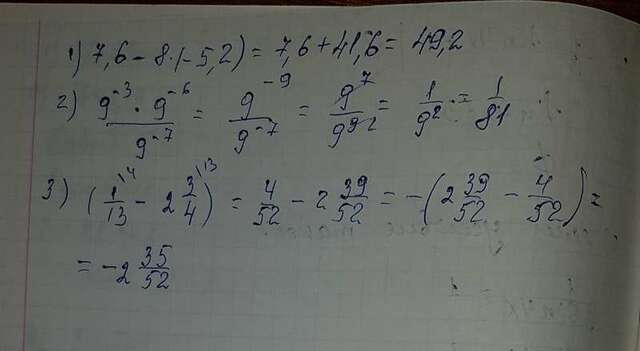 1) 7,6 - 8·(-5,2) = 7,6 + 41,6 = 49,2
2) 9⁻³ · 9⁻⁶ / 9⁻⁷ = 9⁻⁹ / 9⁻⁷ = 9⁷ / 9⁹ 2 = 1 / 9² = 1 / 81
3) (1/13 \14 - 2 3/4 \13) = 4/52 - 2 39/52 = -(2 39/52 - 4/52) =
= -2 35/52